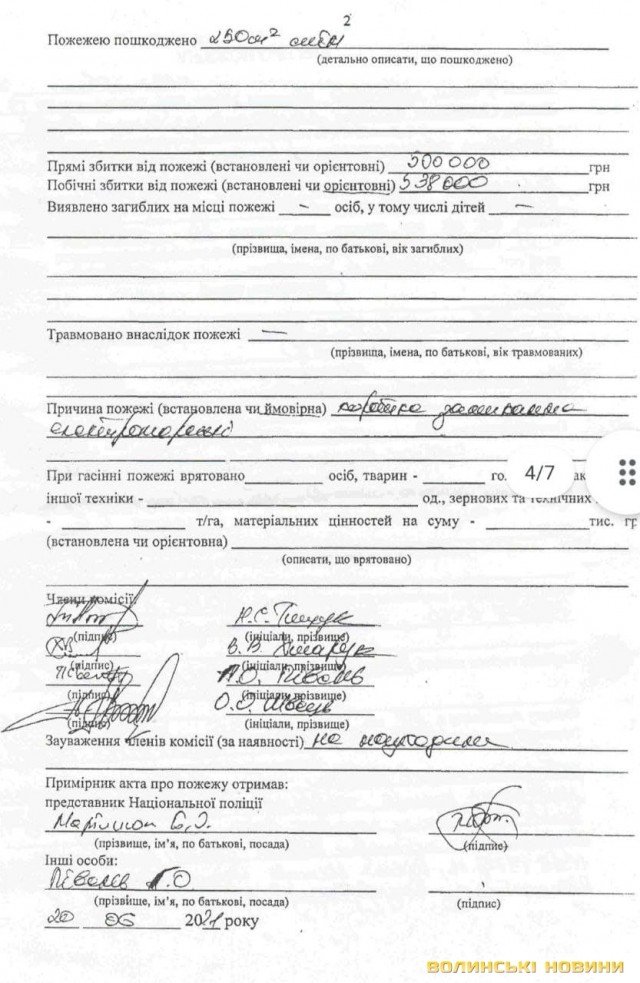 2
Пожежею пошкоджено 250 м²
(детально описати, що пошкоджено)
Прямі збитки від пожежі (встановлені чи орієнтовні) 500 000 грн
Побічні збитки від пожежі (встановлені чи орієнтовні) 538 000 грн
Виявлено загиблих на місці пожежі — осіб, у тому числі дітей —
(прізвища, імена, по батькові, вік загиблих)
Травмовано внаслідок пожежі —
(прізвища, імена, по батькові, вік травмованих)
Причина пожежі (встановлена чи ймовірна) коротке замикання
електромережі
При гасінні пожежі врятовано осіб, тварин - го 4/7 ак
іншої техніки - од., зернових та технічних
- т/га, матеріальних цінностей на суму - тис. гр
(встановлена чи орієнтовна)
(описати, що врятовано)
Члени комісії
(підпис) (ініціали, прізвище)
В.В.
(підпис) (ініціали, прізвище)
(підпис) (ініціали, прізвище)
О.О.
(підпис) (ініціали, прізвище)
Зауваження членів комісії (за наявності) не надходили
Примірник акта про пожежу отримав:
представник Національної поліції
(прізвище, ім’я, по батькові, посада) (підпис)
Інші особи:
(прізвище, ім’я, по батькові, посада) (підпис)
20 06 2021 року
ВОЛИНСЬКІ НОВИНИ